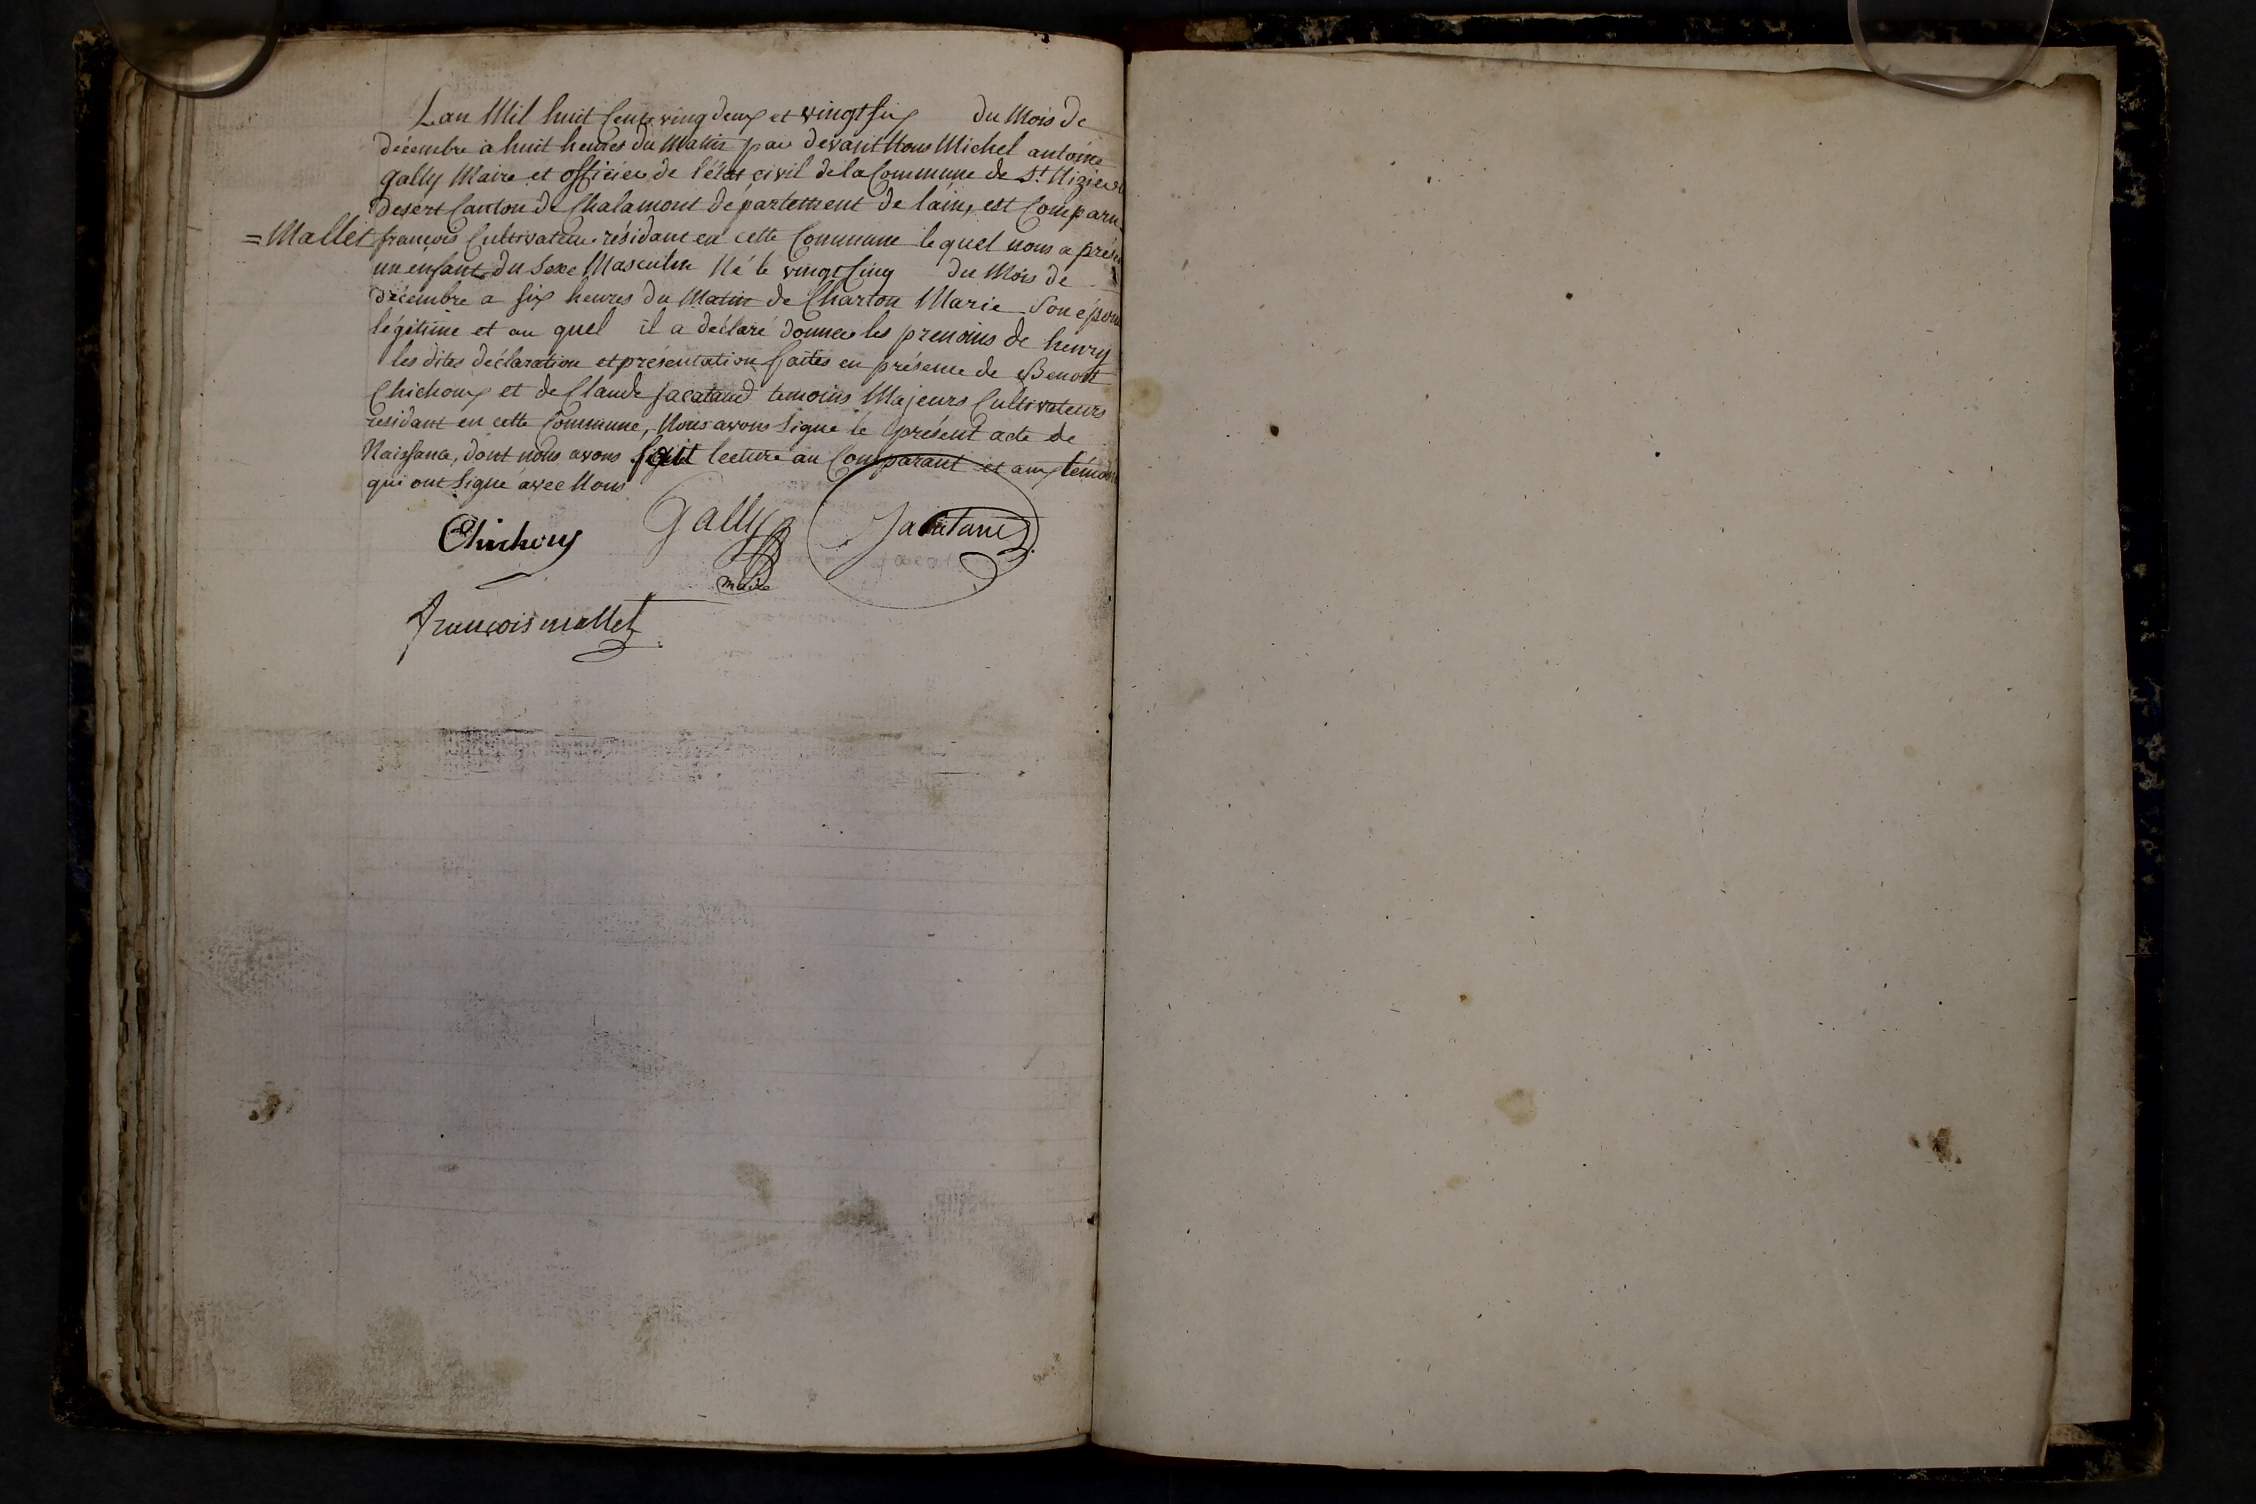 Lan Mil huit Cents ving deux et vingt six du Mois de
décembre a huit heures du Matin par devant Nous Michel antoine
Gally Maire et officier de l'état civil de la Commune de St Nizier le
desert Canton de Chalamont département de l'ain, est Comparu
=Mallet françois Cultivateur résidant en cette Commune lequel nous a prése
un enfant du Sexe Masculin Né le vingt Cinq du Mois de
décembre a six heures du Matin de Charton Marie Son épous
légitime et au quel il a déclaré donner les prenoms de henry
les dites déclaration et présentation faites en présence de Benoit
Chichoux et de Claude Jacataud temoins Majeurs Cultivateurs
residant en cette Commune, Nous avons Signé le présent acte de
Naissance, dont nous avons fait lecture au Comparant et aux témoin
qui ont Signé avec Nous
Chichoux Gally Jacataud
maire
françois mallet